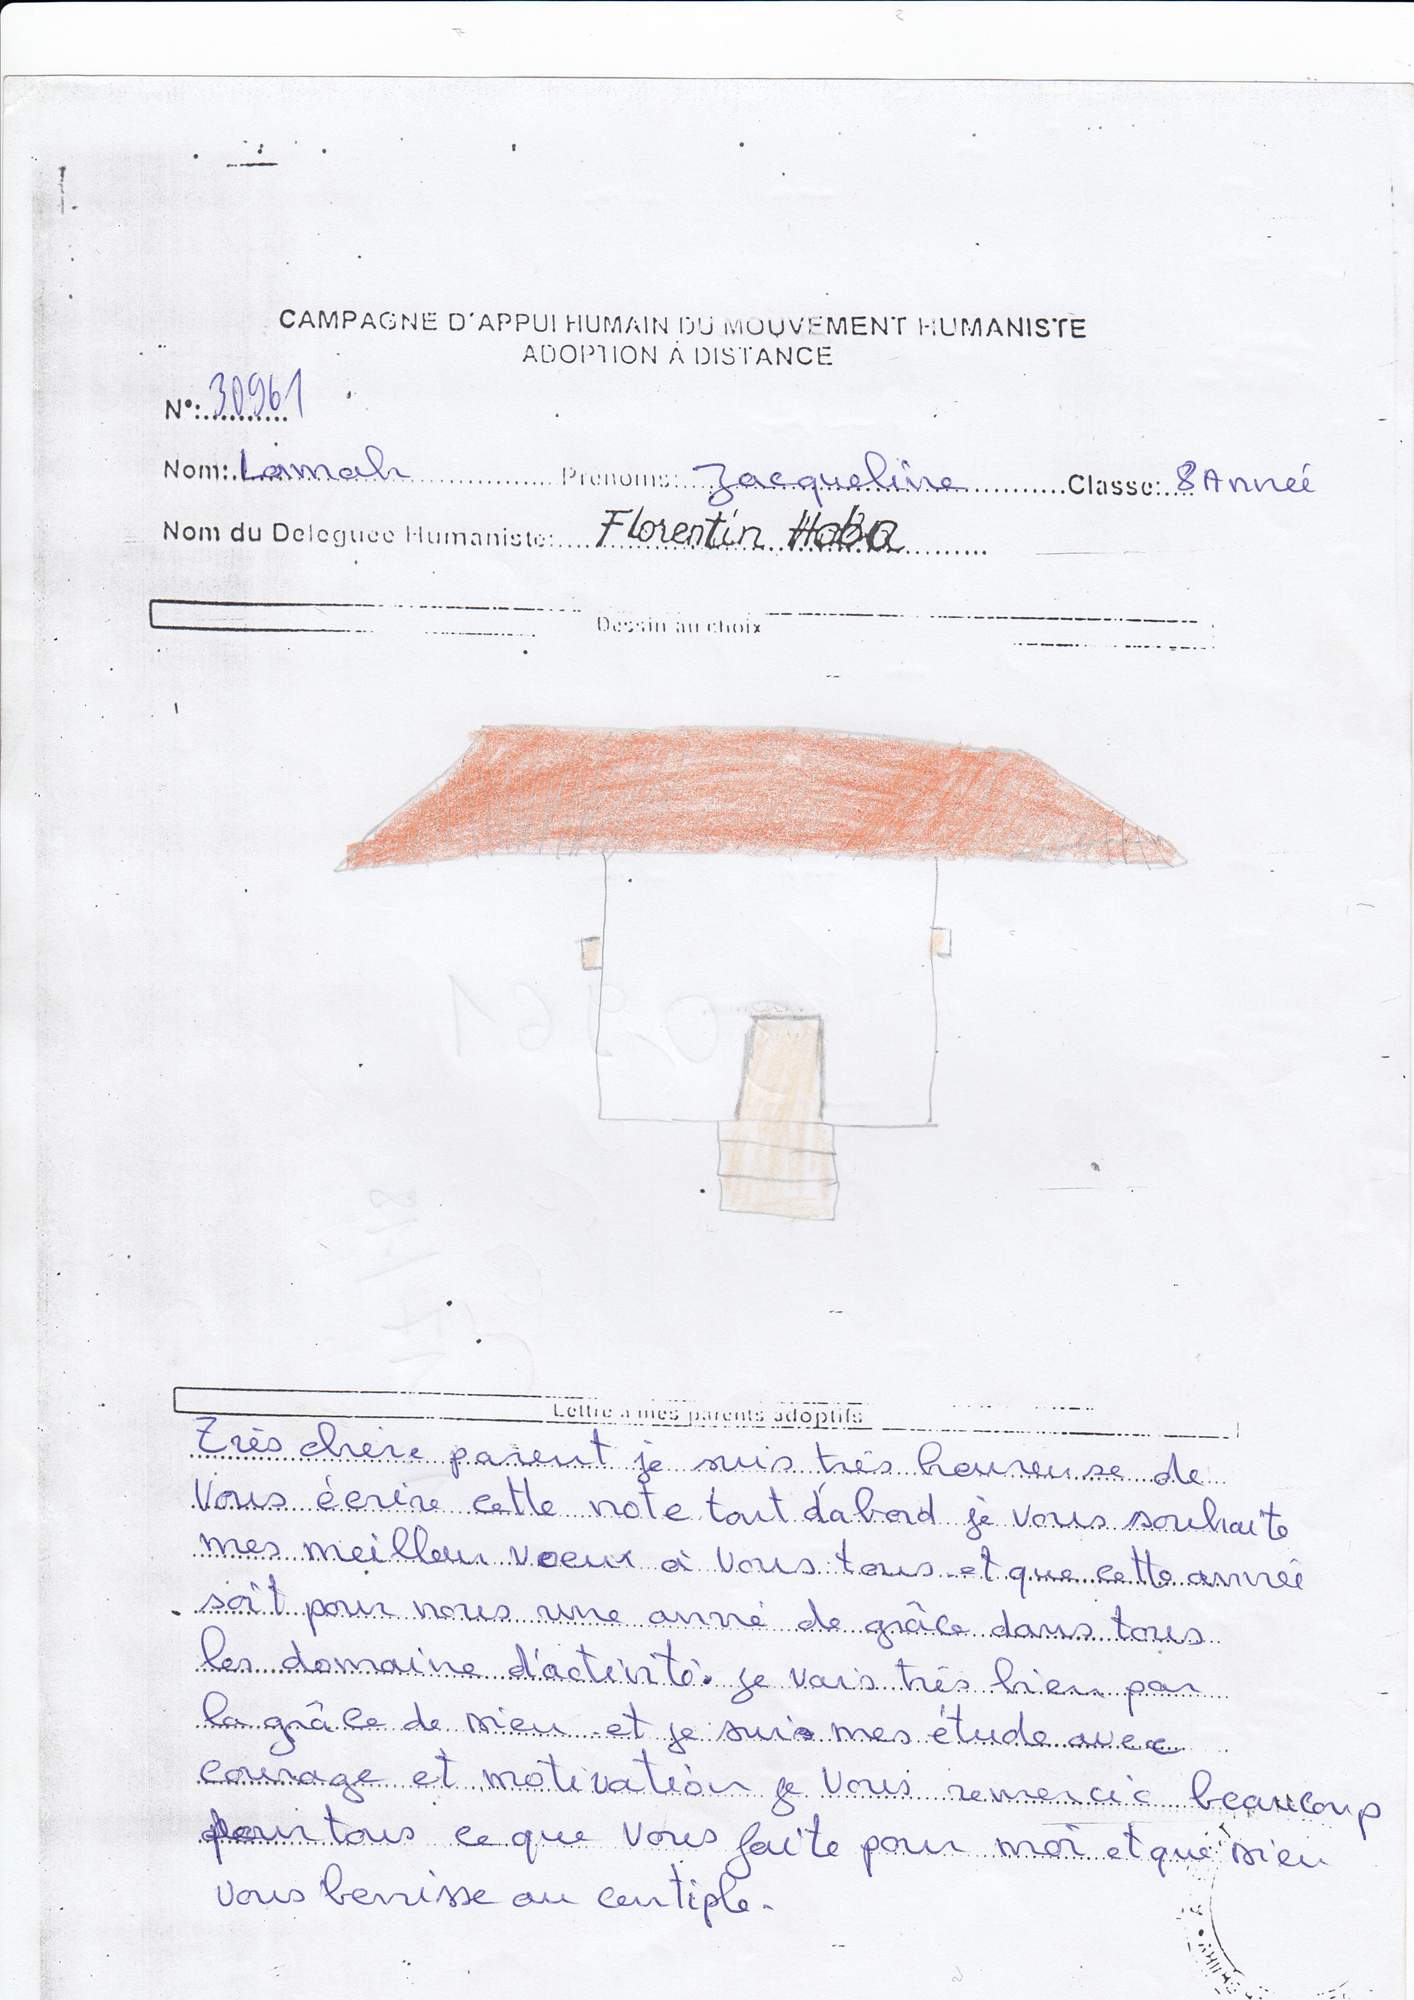 CAMPAGNE D'APPUI HUMAIN DU MOUVEMENT HUMANISTE
ADOPTION À DISTANCE
N°: 30961
Nom: Lamah Prénoms: Jacqueline Classe: 8 Année
Nom du Déléguée Humaniste: Florentin Haba
Dessin au choix
Lettre à mes parents adoptifs
Très chère parent je suis très heureuse de
Vous écrire cette note tout d'abord je vous souhaite
mes meilleur voeux à Vous tous et que cette année
soit pour nous une anné de grâce dans tous
les domaine d'activité. je vais très bien par
la grâce de Dieu et je suis mes étude avec
courage et motivation je Vous remercie beaucoup
pour tous ce que Vous faite pour moi et que Dieu
vous benisse au centiple.